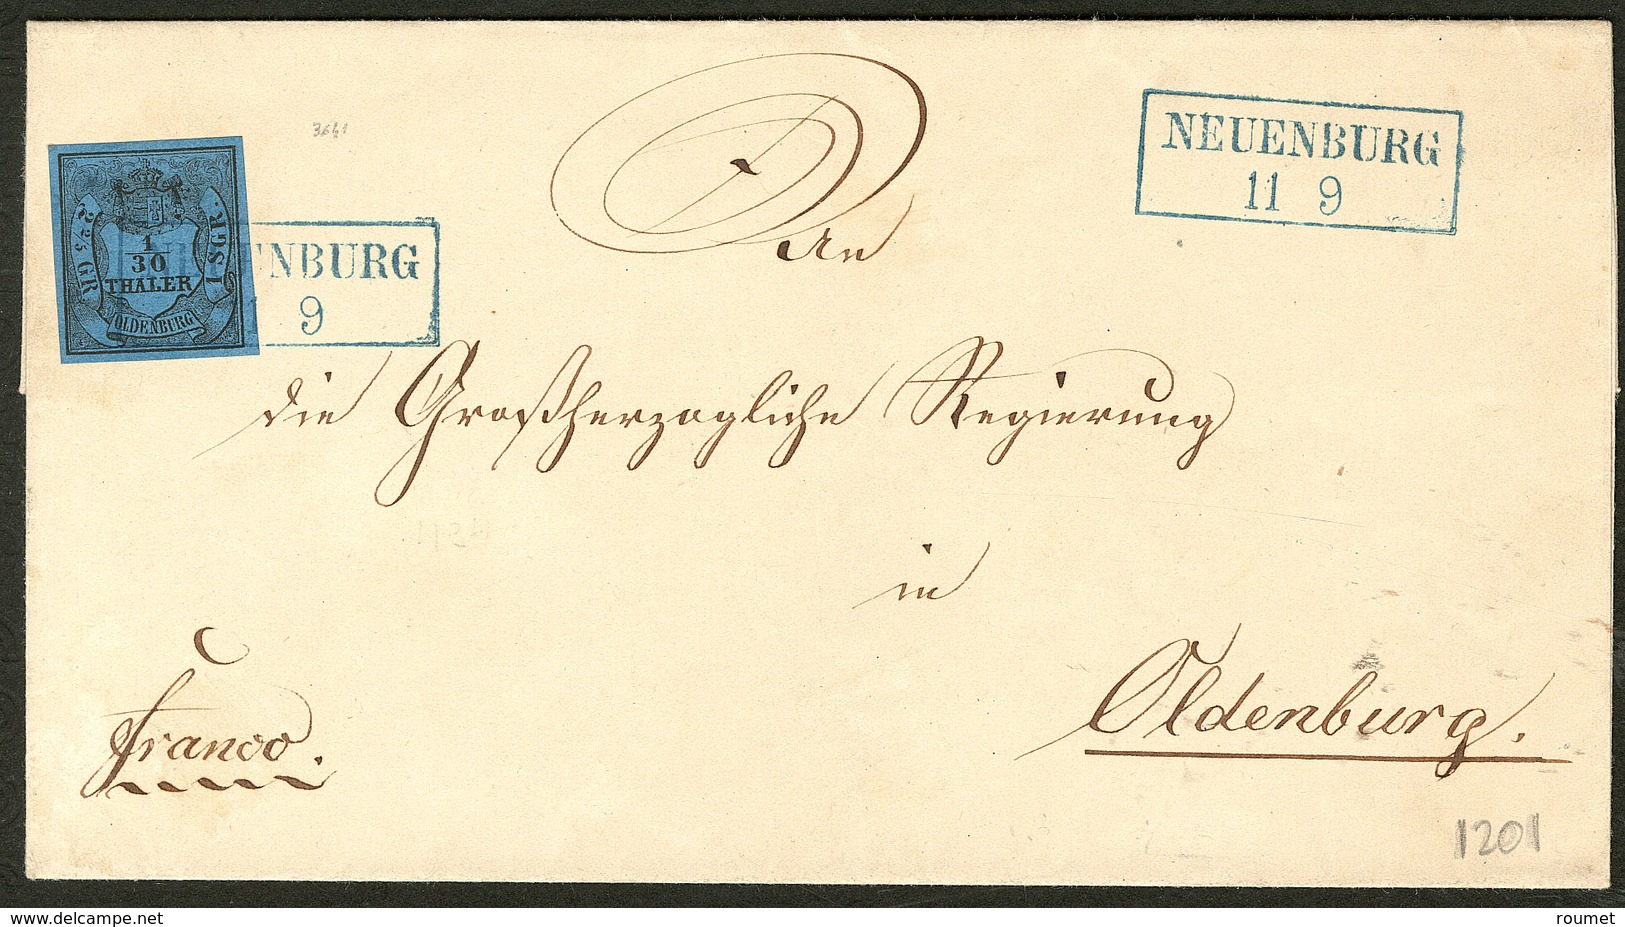 3641
NEUENBURG
11 9
2 2/5 GR.
1 SGR.
1/30
THALER
OLDENBURG
NENBURG
9
An
die Großherzogliche Regierung
in
Oldenburg.
franco.
1201
delcampe.net
roumet